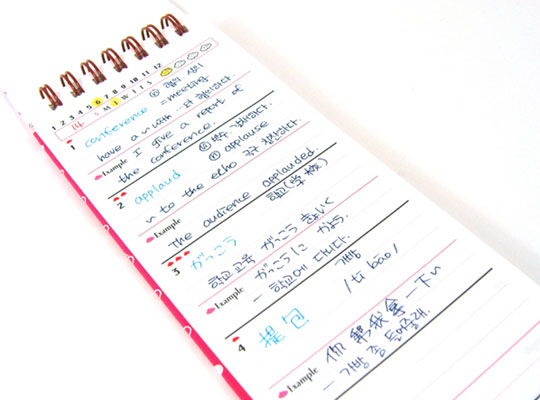 1 2 3 4 5 6 7 8 9 10 11 12
14 S M T W T F S
1 conference 명 회의
= meeting
have a ~ with ~와 협의하다.
Example I give a report of
the conference.
2 applaud 동 박수 갈채하다.
명 applause
~ to the echo 극구 칭찬하다.
Example The audience applauded.
3 がっこう 학교(学校)
학교교육 がっこう きょういく
Example がっこうに かよう.
- 학교에 다니다.
4 提包 가방
/tí bāo/
Example 你帮我拿一下~
- 가방 좀 들어줄래.